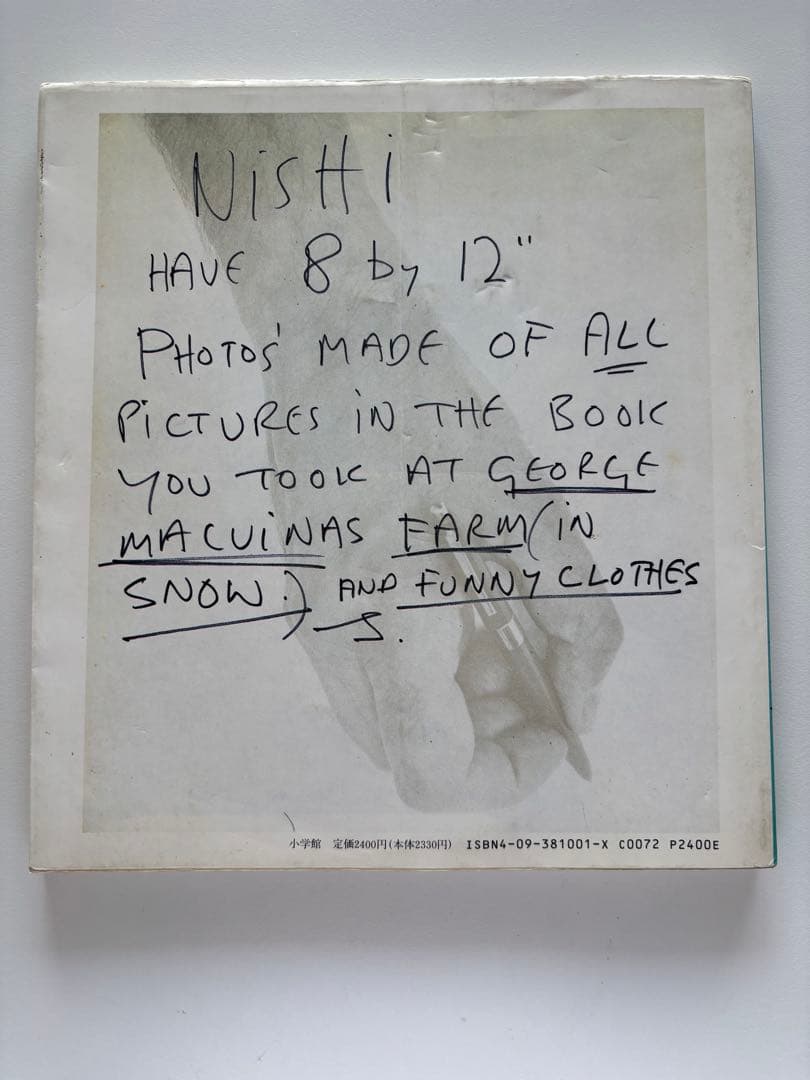 NiSHi
HAVE 8 by 12"
PHOTOS' MADE OF ALL
PiCTURES iN THE BOOK
YOU TOOK AT GEORGE
MACUiNAS FARM (IN
SNOW.) AND FUNNY CLOTHES
S.
小学館 定価2400円(本体2330円) ISBN4-09-381001-X C0072 P2400E